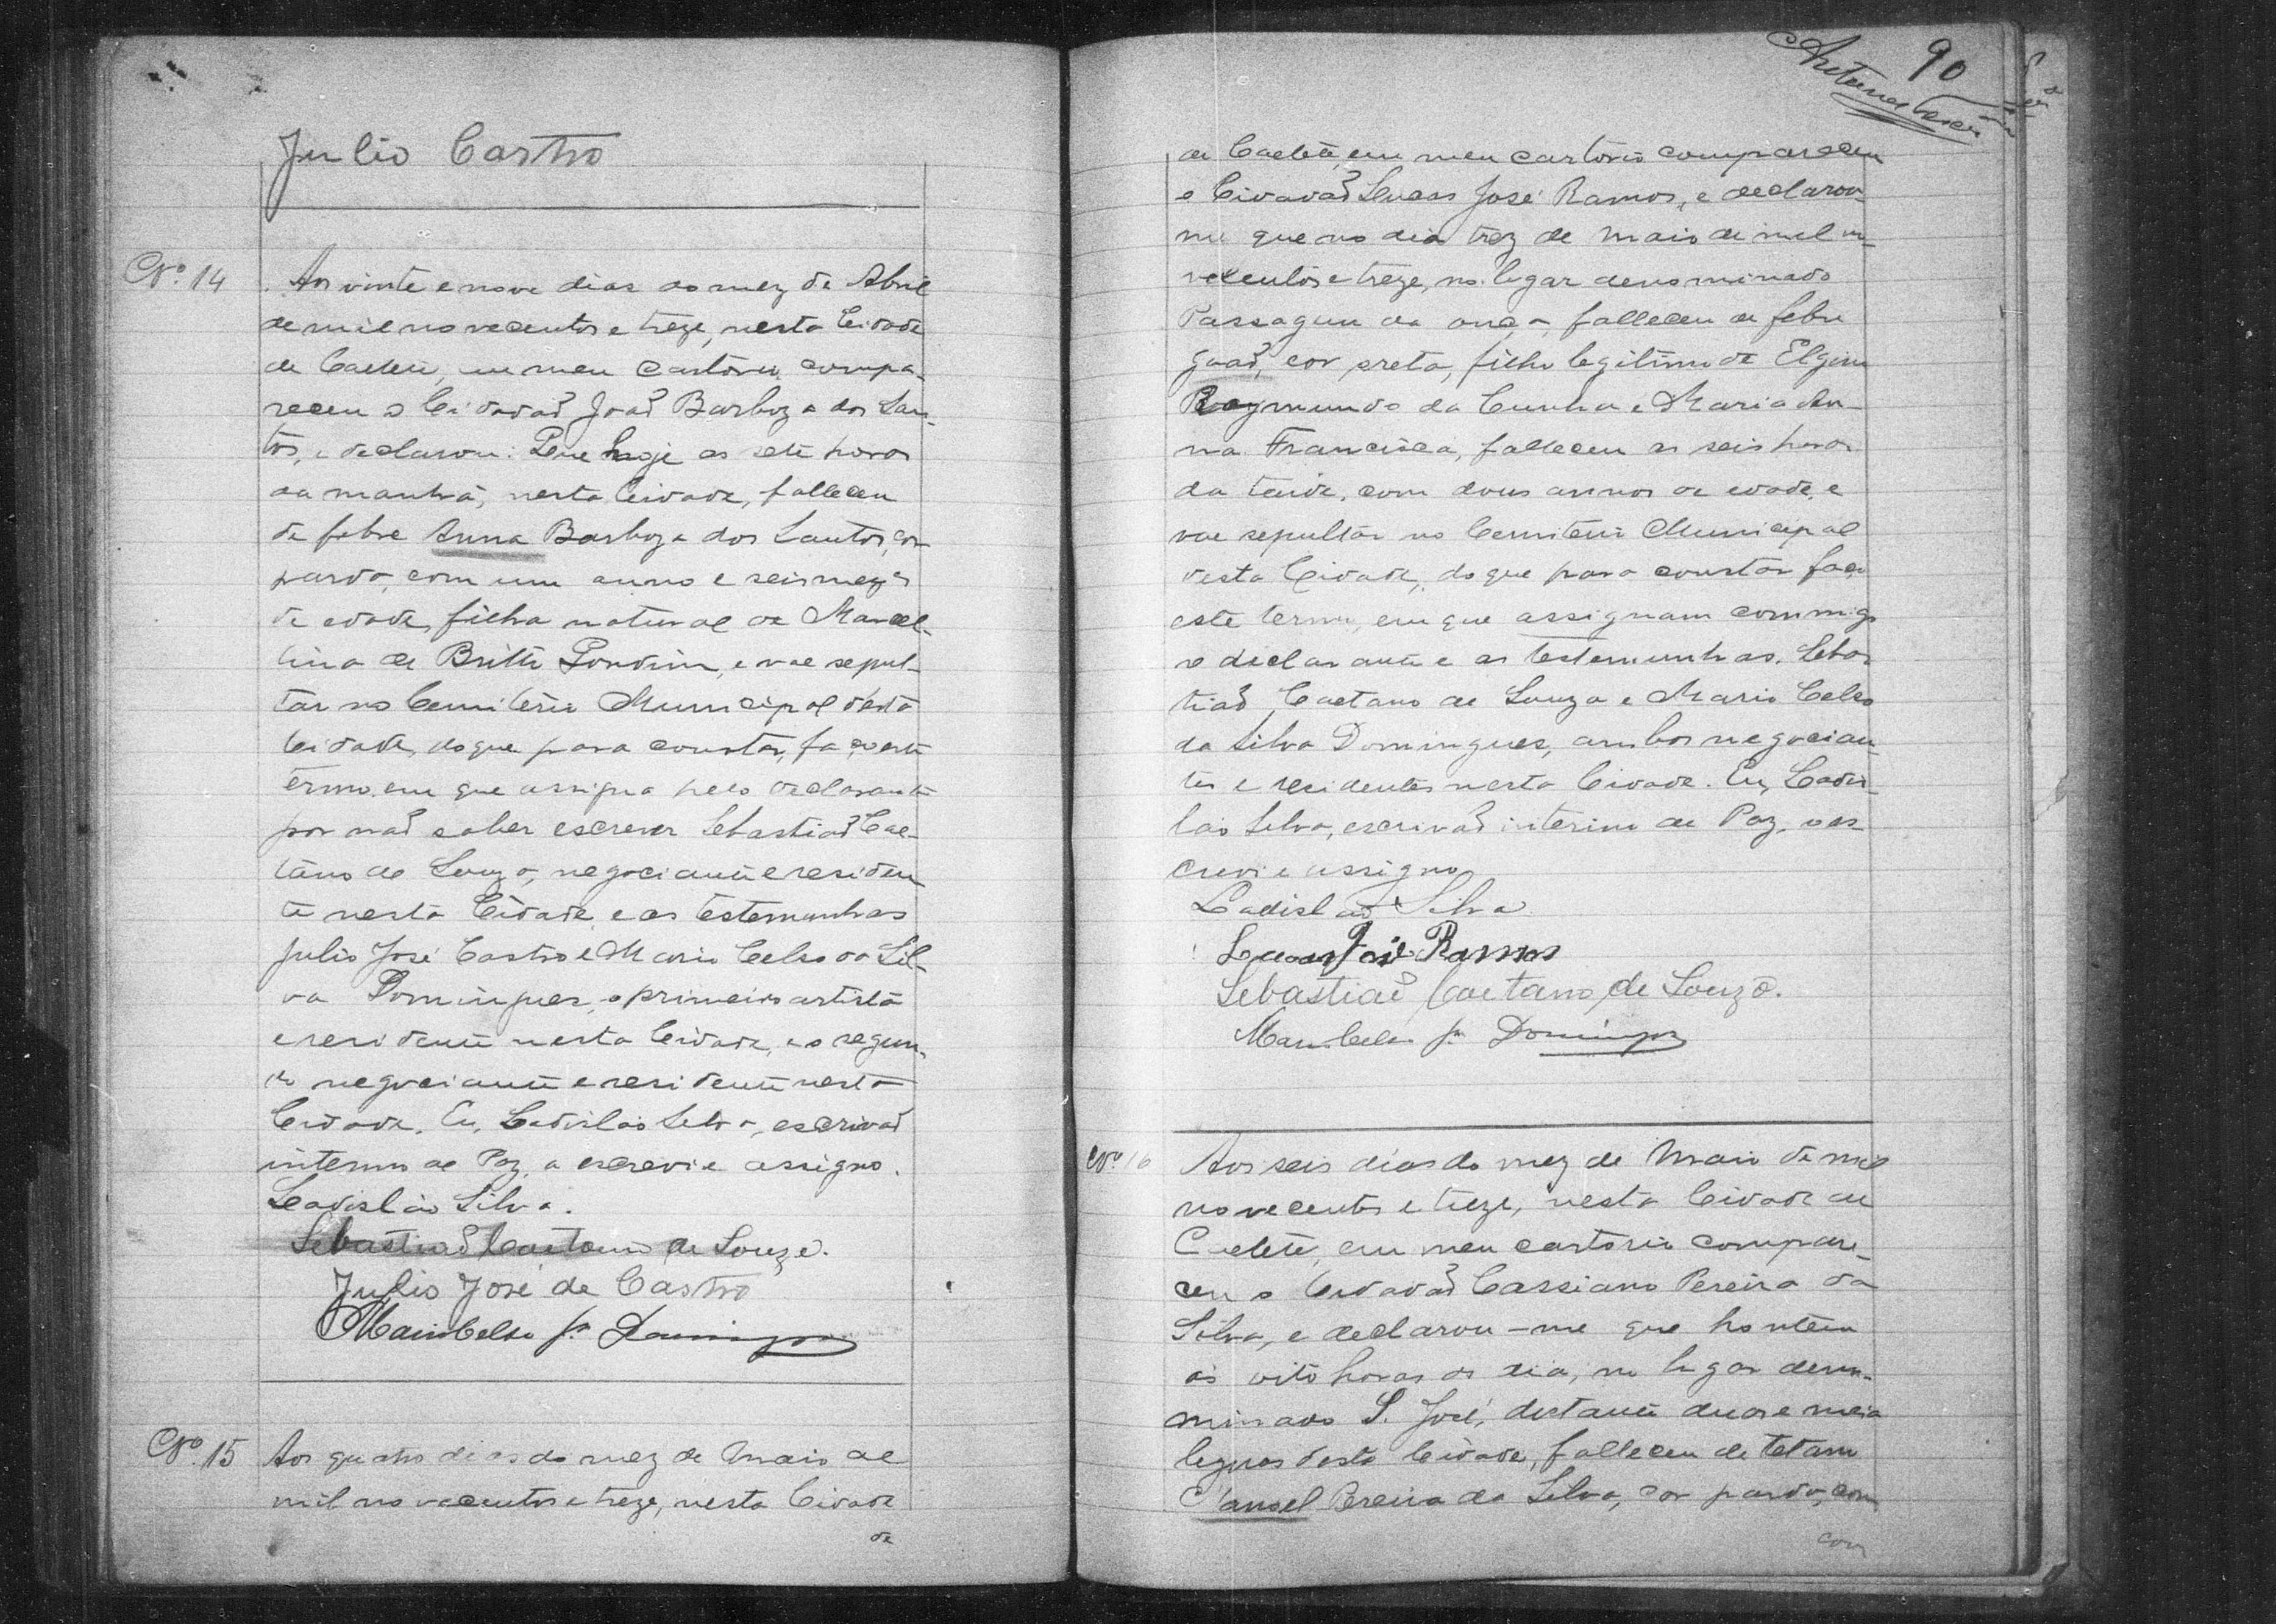 Julio Castro
Nº 14
Aos vinte e nove dias do mez de Abril
de mil novecentos e treze, nesta Cidade
de Caeteté, em meu cartorio compa-
receu o Cidadaõ Joaõ Barboza dos San-
tos, e declarou: Que hoje as sete horas
da manhã, nesta Cidade, falleceu
de febre Anna Barboza dos Santos, cor
parda, com um anno e seis mezes
de edade, filha natural de Marcel-
lina de Britto Gondim, e vae sepul-
tar no Cemiterio Municipal desta
Cidade, do que para constar, faço este
termo, em que assigna pelo declarante
por naõ saber escrever Sebastiaõ Cae-
tano de Souza, negociante e residen-
te nesta Cidade, e as testemunhas
Julio José Castro e Mario Celso da Sil-
va Domingues, o primeiro artista
e residente nesta Cidade, e o segun-
do negociante e residente nesta
Cidade. Eu, Ladisláo Silva, escrivaõ
interino de Paz, o escrevi e assigno.
Ladisláo Silva.
Sebastiaõ Caetano de Souza.
Julio José de Castro
Mario Celso Sª Domingues
Nº 15
Aos quatro dias do mez de Maio de
mil novecentos e treze, nesta Cidade
de
90
de Caeteté, em meu cartorio compareceu
o Cidadaõ Lucas José Ramos, e declarou-
me que no dia trez de Maio de mil no-
vecentos e treze, no logar denominado
Passagem da onça, falleceu de febre
Joaõ, cor preta, filho legitimo de
Raymundo da Cunha e Maria An-
na Francisca, falleceu as seis horas
da tarde, com dous annos de edade, e
vae sepultar no Cemiterio Municipal
desta Cidade, do que para constar faço
este termo, em que assignam commigo
o declarante e as testemunhas. Sebas-
tiaõ Caetano de Souza e Mario Celso
da Silva Domingues, ambos negocian-
tes e residentes nesta Cidade. Eu, Ladis-
láo Silva, escrivaõ interino de Paz, o es-
crevi e assigno
Ladisláo Silva
Lucas José Ramos
Sebastiaõ Caetano de Souza.
Mario Celso Sª Domingues
Nº 16
Aos seis dias do mez de Maio de mil
novecentos e treze, nesta Cidade de
Caeteté, em meu cartorio compare-
ceu o Cidadaõ Cassiano Pereira da
Silva, e declarou-me que hontem
ás oito horas do dia, no logar deno-
minado S. José, distante duas e meia
leguas desta Cidade, falleceu de tetano
Manoel Pereira da Silva, cor parda, com
com